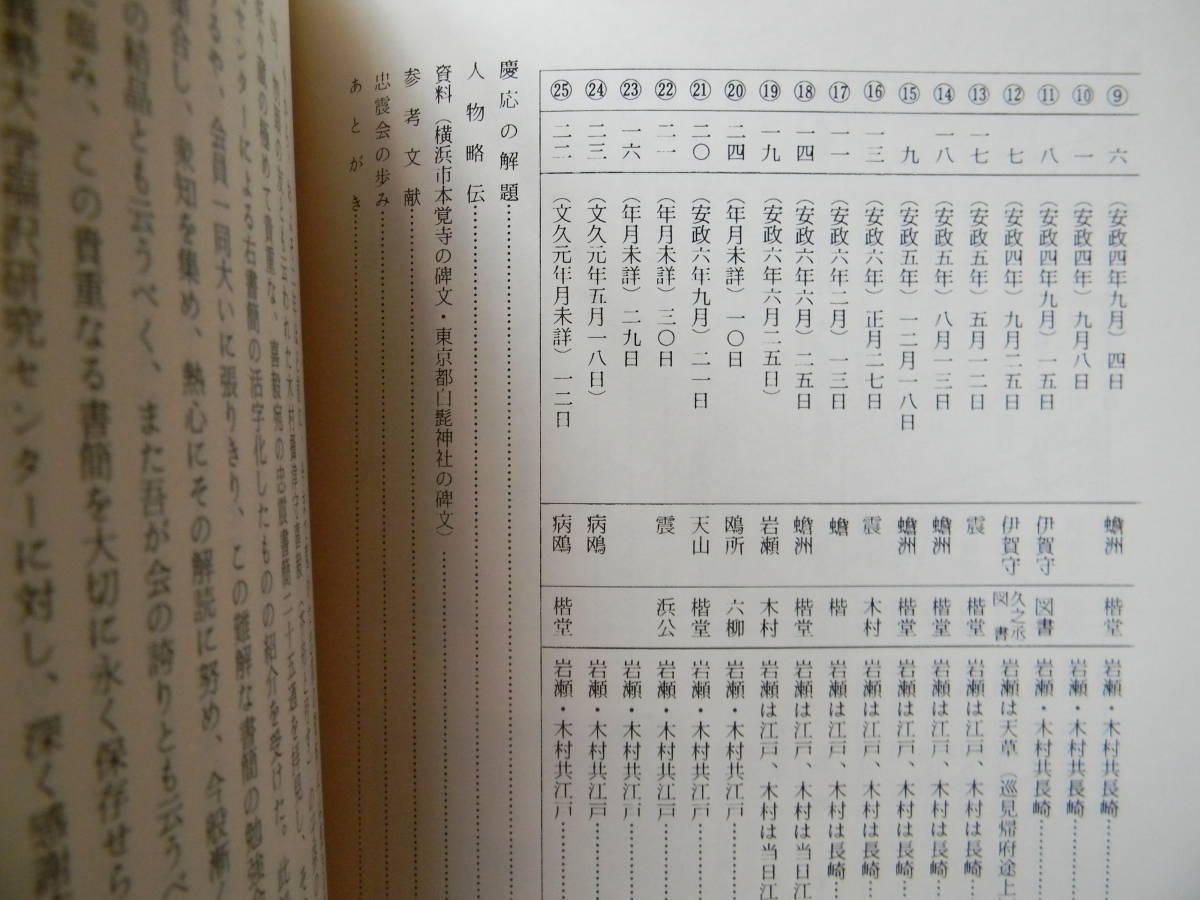 ⑨ 六 （安政四年九月）四日 蟾洲 楷堂 岩瀬・木村共長崎
⑩ 一 （安政四年）九月八日 岩瀬・木村共長崎
⑪ 八 （安政四年九月）一五日 伊賀守 図書 岩瀬・木村共長崎
⑫ 七 （安政四年）九月二五日 伊賀守 久之丞 図書 岩瀬は天草（巡見帰府途上
⑬ 一七 （安政五年）五月一二日 震 楷堂 岩瀬は江戸、木村は長崎
⑭ 一八 （安政五年）八月一三日 蟾洲 楷堂 岩瀬は江戸、木村は長崎
⑮ 九 （安政五年）一二月一八日 蟾洲 楷堂 岩瀬は江戸、木村は長崎
⑯ 一三 （安政六年）正月二七日 震 木村 岩瀬は江戸、木村は長崎
⑰ 一一 （安政六年二月）一三日 蟾 楷 岩瀬は江戸、木村は長崎
⑱ 一四 （安政六年六月）二五日 蟾洲 楷堂 岩瀬は江戸、木村は当日江
⑲ 一九 （安政六年六月二五日） 岩瀬 木村 岩瀬は江戸、木村は当日江
⑳ 二四 （年月未詳）一〇日 鴎所 六柳 岩瀬・木村共江戸
㉑ 二〇 （安政六年九月）二一日 天山 楷堂 岩瀬・木村共江戸
㉒ 二一 （年月未詳）三〇日 震 浜公 岩瀬・木村共江戸
㉓ 一六 （年月未詳）二九日 岩瀬・木村共江戸
㉔ 二三 （文久元年五月一八日） 病鴎 岩瀬・木村共江戸
㉕ 二二 （文久元年月未詳）一二日 病鴎 楷堂 岩瀬・木村共江戸
慶応の解題
人物略伝
資料（横浜市本覚寺の碑文・東京都白髭神社の碑文）
参考文献
忠震会の歩み
あとがき
センターによる右書簡の活字化したものの紹介を受けた。
るや、会員一同大いに張りきり、この難解な書簡の勉強会
集合し、衆知を集め、熱心にその解読に努め、今般漸く
の結晶とも云うべく、また吾が会の誇りとも云うべ
臨み、この貴重なる書簡を大切に永く保存せら
義塾大学福沢研究センターに対し、深く感謝